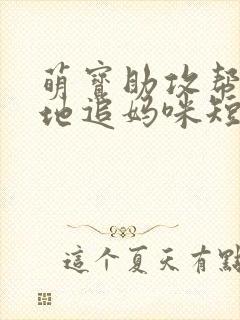 萌寶助攻幫
地追媽咪短
這个夏天有點